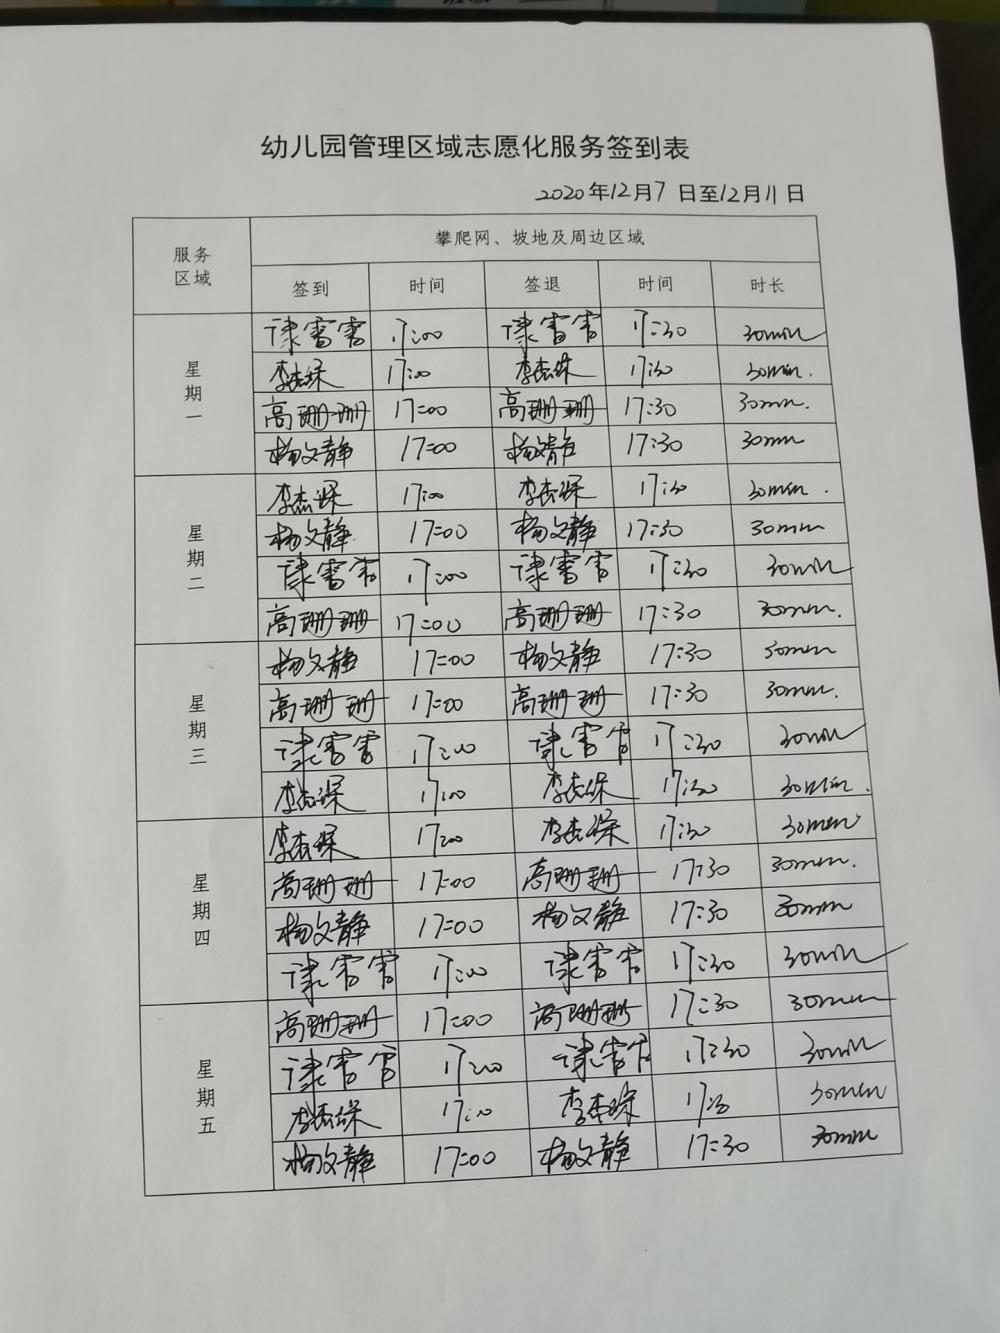 幼儿园管理区域志愿化服务签到表
2020年12月7日至12月11日
服务区域 攀爬网、坡地及周边区域
签到 时间 签退 时间 时长
星期一
17:00 17:30 30min
17:00 17:30 30min.
高珊珊 17:00 高珊珊 17:30 30min.
杨文静 17:00 杨文静 17:30 30min
星期二
17:00 17:30 30min.
杨文静 17:00 杨文静 17:30 30min
17:00 17:30 30min
高珊珊 17:00 高珊珊 17:30 30min.
星期三
杨文静 17:00 杨文静 17:30 30min
高珊珊 17:00 高珊珊 17:30 30min.
17:00 17:30 30min
17:00 17:30 30min.
星期四
17:00 17:30 30min
高珊珊 17:00 高珊珊 17:30 30min.
杨文静 17:00 杨文静 17:30 30min
17:00 17:30 30min
星期五
高珊珊 17:00 高珊珊 17:30 30min
17:00 17:30 30min
17:00 17:30 30min
杨文静 17:00 杨文静 17:30 30min